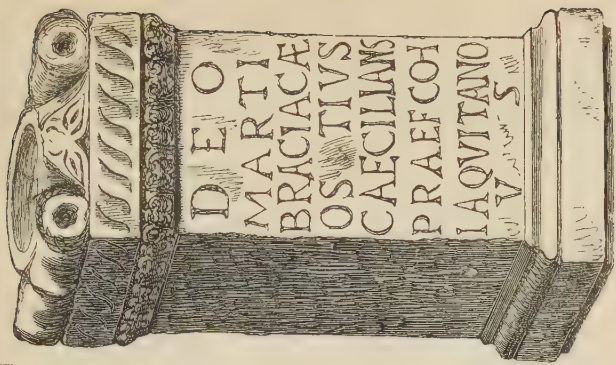 DEO
MARTI
BRACIACÆ
OS TIVS
CAECILIANS
PRAEF COH
I AQVITANO
V S